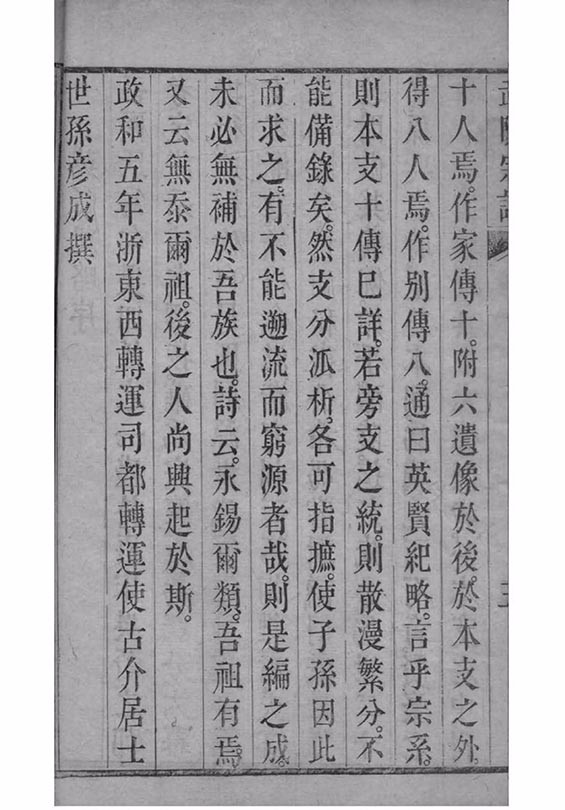 十人焉。作家傳十。附六遺像於後。於本支之外。
得八人焉。作別傳八。通曰英賢紀略。言乎宗系。
則本支十傳巳詳。若旁支之統。則散漫繁分。不
能備錄矣。然支分泒析。各可指摭。使子孫因此
而求之。有不能遡流而窮源者哉。則是編之成。
未必無補於吾族也。詩云。永錫爾類。吾祖有焉。
又云無忝爾祖。後之人尚興起於斯。
政和五年浙東西轉運司都轉運使古介居士
世孫彥成撰